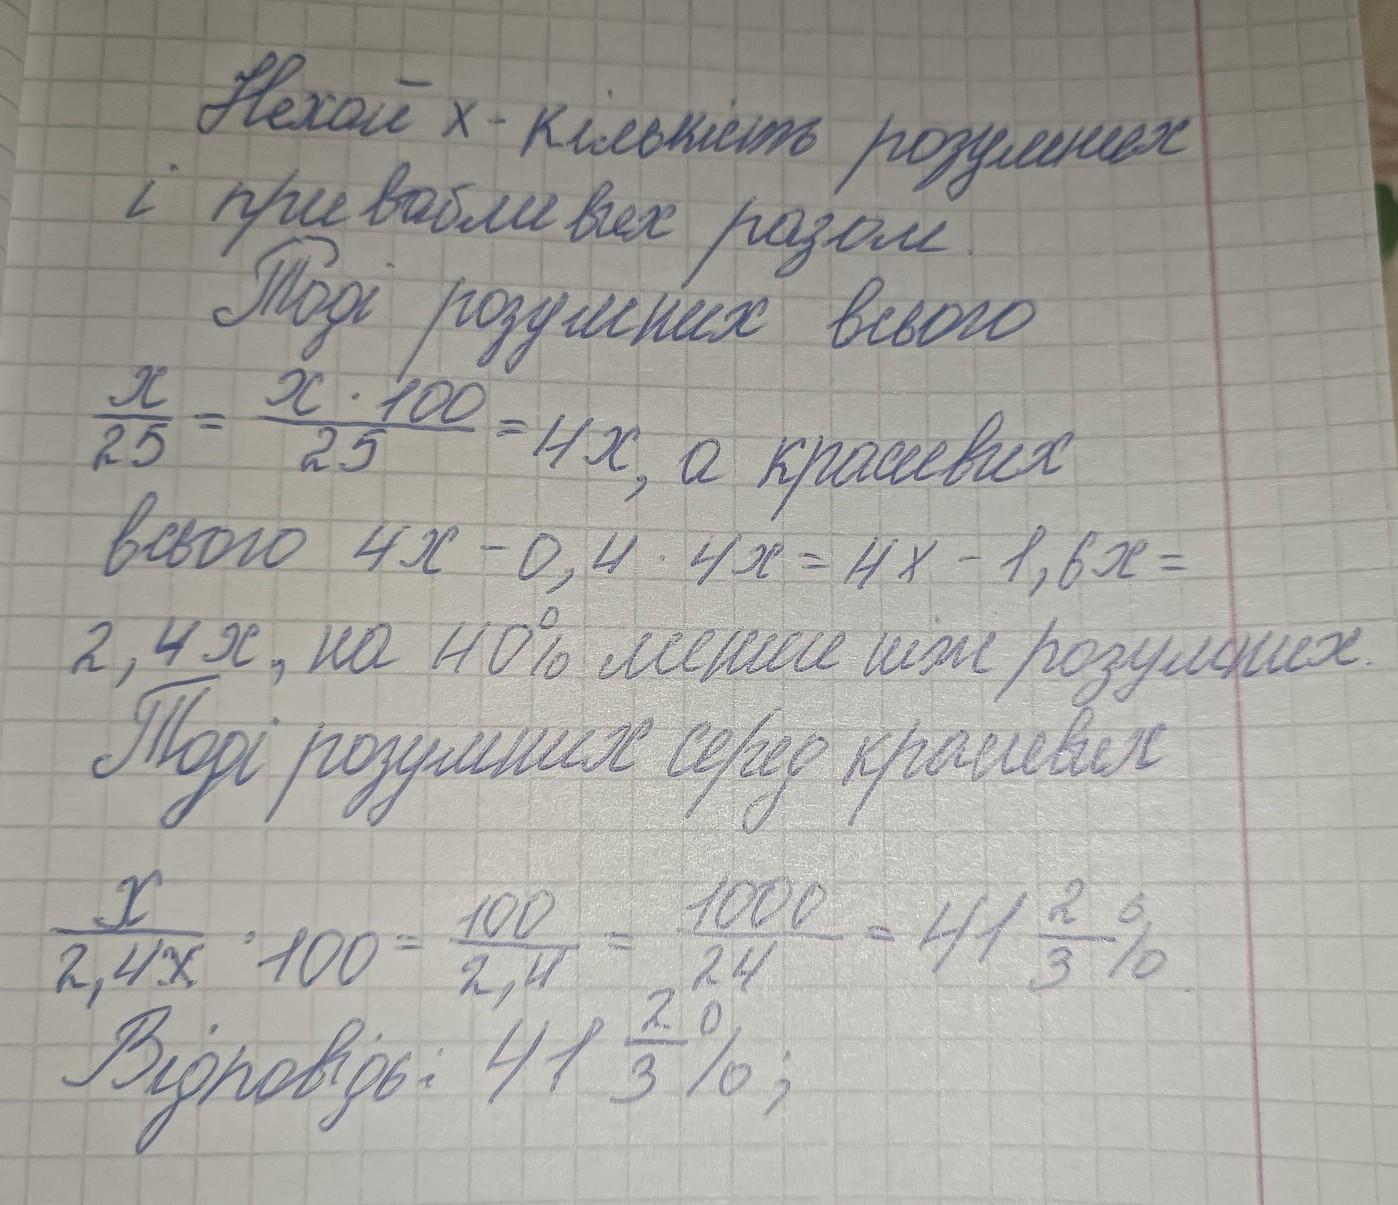 Нехай х - кількість розумних
і привабливих разом.
Тоді розумних всього
х/25 = х · 100/25 = 4х, а красивих
всього 4х - 0,4 · 4х = 4х - 1,6х =
2,4х, на 40% менше ніж розумних.
Тоді розумних серед красивих
х/2,4х · 100 = 100/2,4 = 1000/24 = 41 2/3 %
Відповідь: 41 2/3 %;